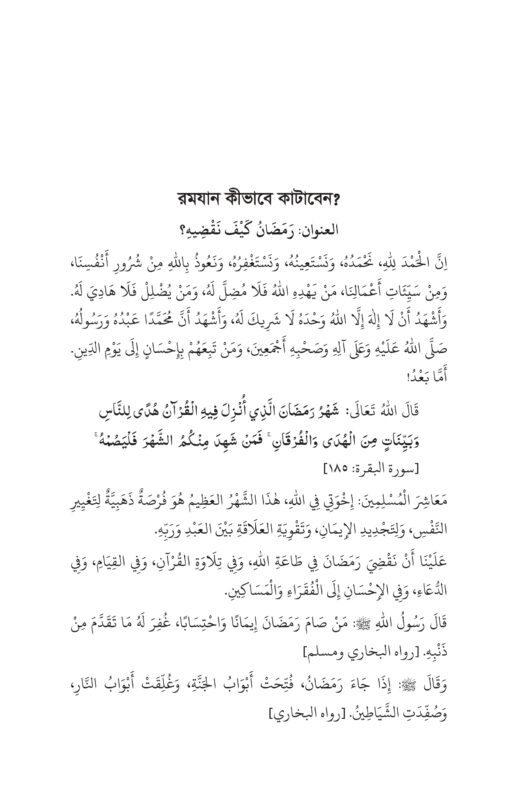 রমযান কীভাবে কাটাবেন?
العنوان: رَمَضَانُ كَيْفَ نَقْضِيهِ؟
اِنَّ الْحَمْدَ لِلهِ، نَحْمَدُهُ، وَنَسْتَعِينُهُ، وَنَسْتَغْفِرُهُ، وَنَعُوذُ بِاللهِ مِنْ شُرُورِ أَنْفُسِنَا،
وَمِنْ سَيِّئَاتِ أَعْمَالِنَا، مَنْ يَهْدِهِ اللهُ فَلَا مُضِلَّ لَهُ، وَمَنْ يُضْلِلْ فَلَا هَادِيَ لَهُ.
وَأَشْهَدُ أَنْ لَا إِلٰهَ إِلَّا اللهُ وَحْدَهُ لَا شَرِيكَ لَهُ، وَأَشْهَدُ أَنَّ مُحَمَّدًا عَبْدُهُ وَرَسُولُهُ،
صَلَّى اللهُ عَلَيْهِ وَعَلَى آلِهِ وَصَحْبِهِ أَجْمَعِينَ، وَمَنْ تَبِعَهُمْ بِإِحْسَانٍ إِلَى يَوْمِ الدِّينِ.
أَمَّا بَعْدُ!
قَالَ اللهُ تَعَالَى: شَهْرُ رَمَضَانَ الَّذِي أُنْزِلَ فِيهِ الْقُرْآنُ هُدًى لِلنَّاسِ
وَبَيِّنَاتٍ مِنَ الْهُدَى وَالْفُرْقَانِ ۚ فَمَنْ شَهِدَ مِنْكُمُ الشَّهْرَ فَلْيَصُمْهُ ۚ
[سورة البقرة: ١٨٥]
مَعَاشِرَ الْمُسْلِمِينَ: إِخْوَتِي فِي اللهِ، هٰذَا الشَّهْرُ العَظِيمُ هُوَ فُرْصَةٌ ذَهَبِيَّةٌ لِتَغْيِيرِ
النَّفْسِ، وَلِتَجْدِيدِ الإِيمَانِ، وَتَقْوِيَةِ العَلَاقَةِ بَيْنَ العَبْدِ وَرَبِّهِ.
عَلَيْنَا أَنْ نَقْضِيَ رَمَضَانَ فِي طَاعَةِ اللهِ، وَفِي تِلَاوَةِ القُرْآنِ، وَفِي القِيَامِ، وَفِي
الدُّعَاءِ، وَفِي الإِحْسَانِ إِلَى الْفُقَرَاءِ وَالْمَسَاكِينِ.
قَالَ رَسُولُ اللهِ ﷺ: مَنْ صَامَ رَمَضَانَ إِيمَانًا وَاحْتِسَابًا، غُفِرَ لَهُ مَا تَقَدَّمَ مِنْ
ذَنْبِهِ. [رواه البخاري ومسلم]
وَقَالَ ﷺ: إِذَا جَاءَ رَمَضَانُ، فُتِحَتْ أَبْوَابُ الجَنَّةِ، وَغُلِّقَتْ أَبْوَابُ النَّارِ،
وَصُفِّدَتِ الشَّيَاطِينُ. [رواه البخاري]